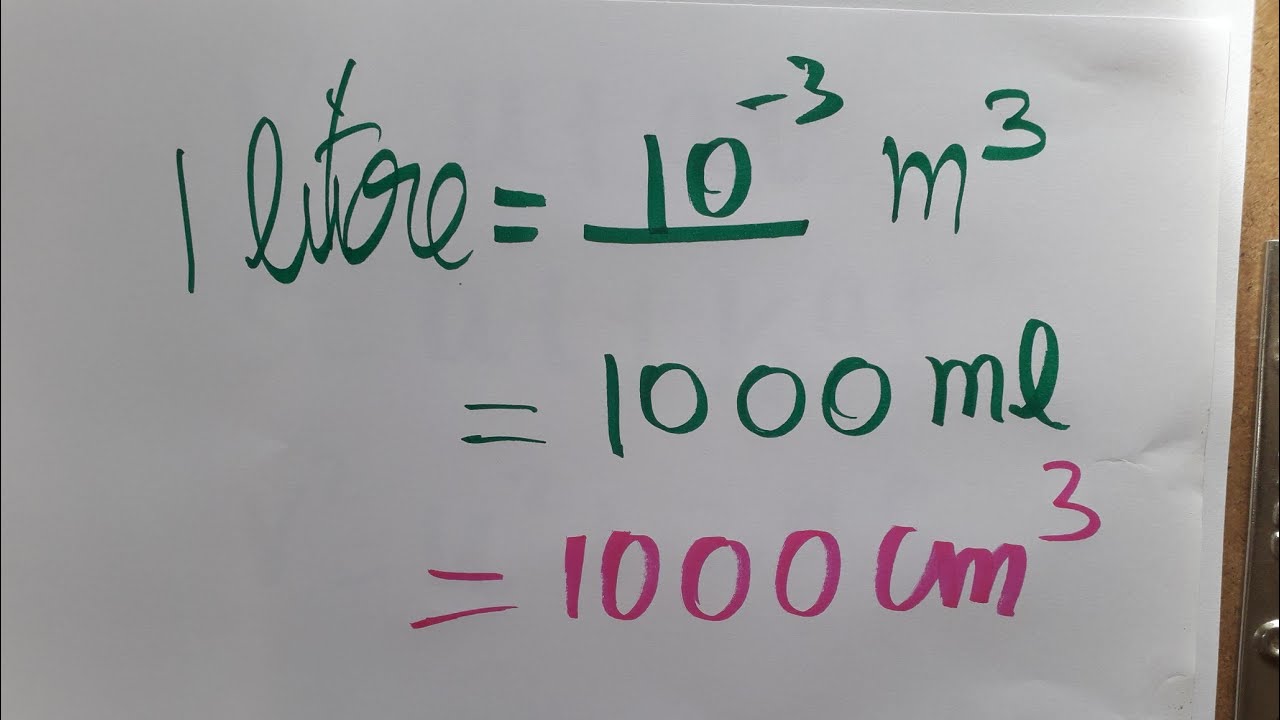 1 litre = 10⁻³ m³
= 1000 ml
= 1000 cm³